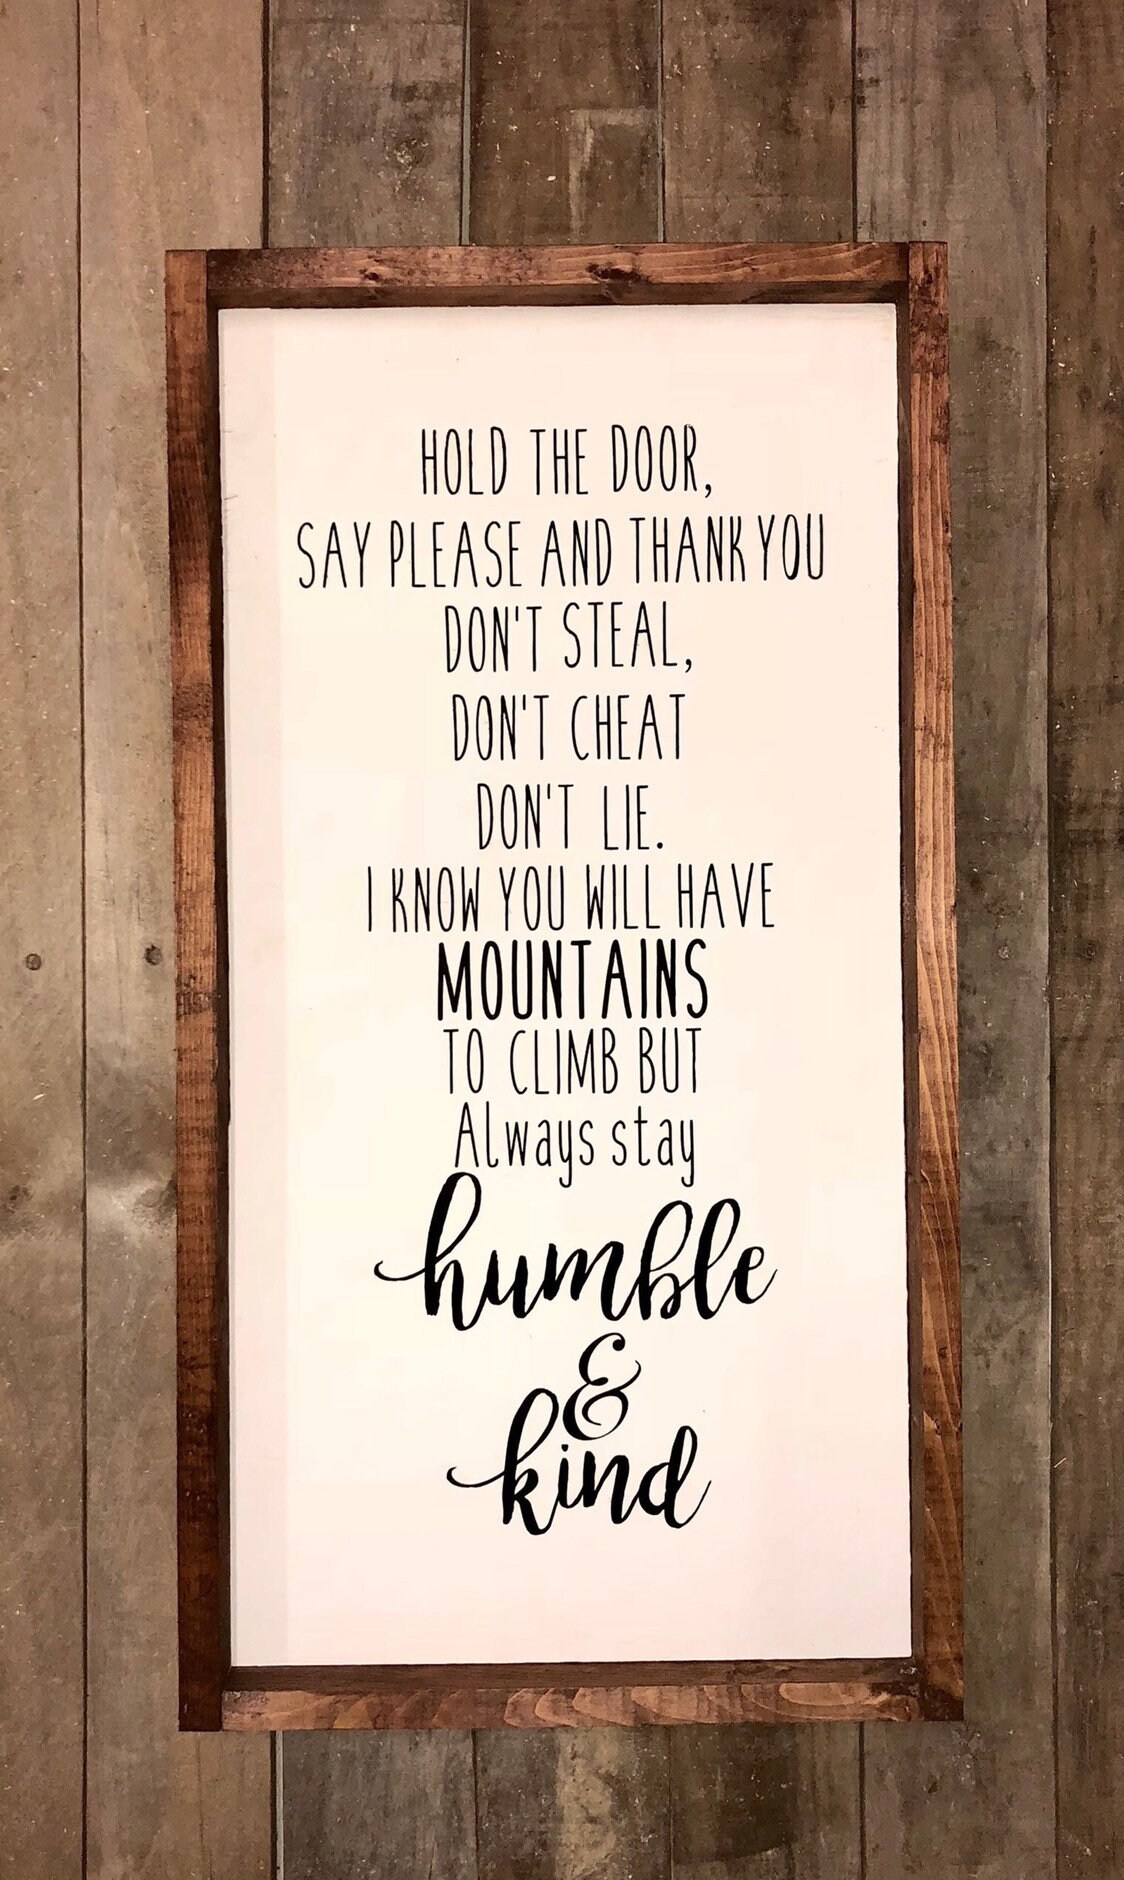 HOLD THE DOOR,
SAY PLEASE AND THANK YOU
DON'T STEAL,
DON'T CHEAT
DON'T LIE.
I KNOW YOU WILL HAVE
MOUNTAINS
TO CLIMB BUT
Always stay
humble
&
kind